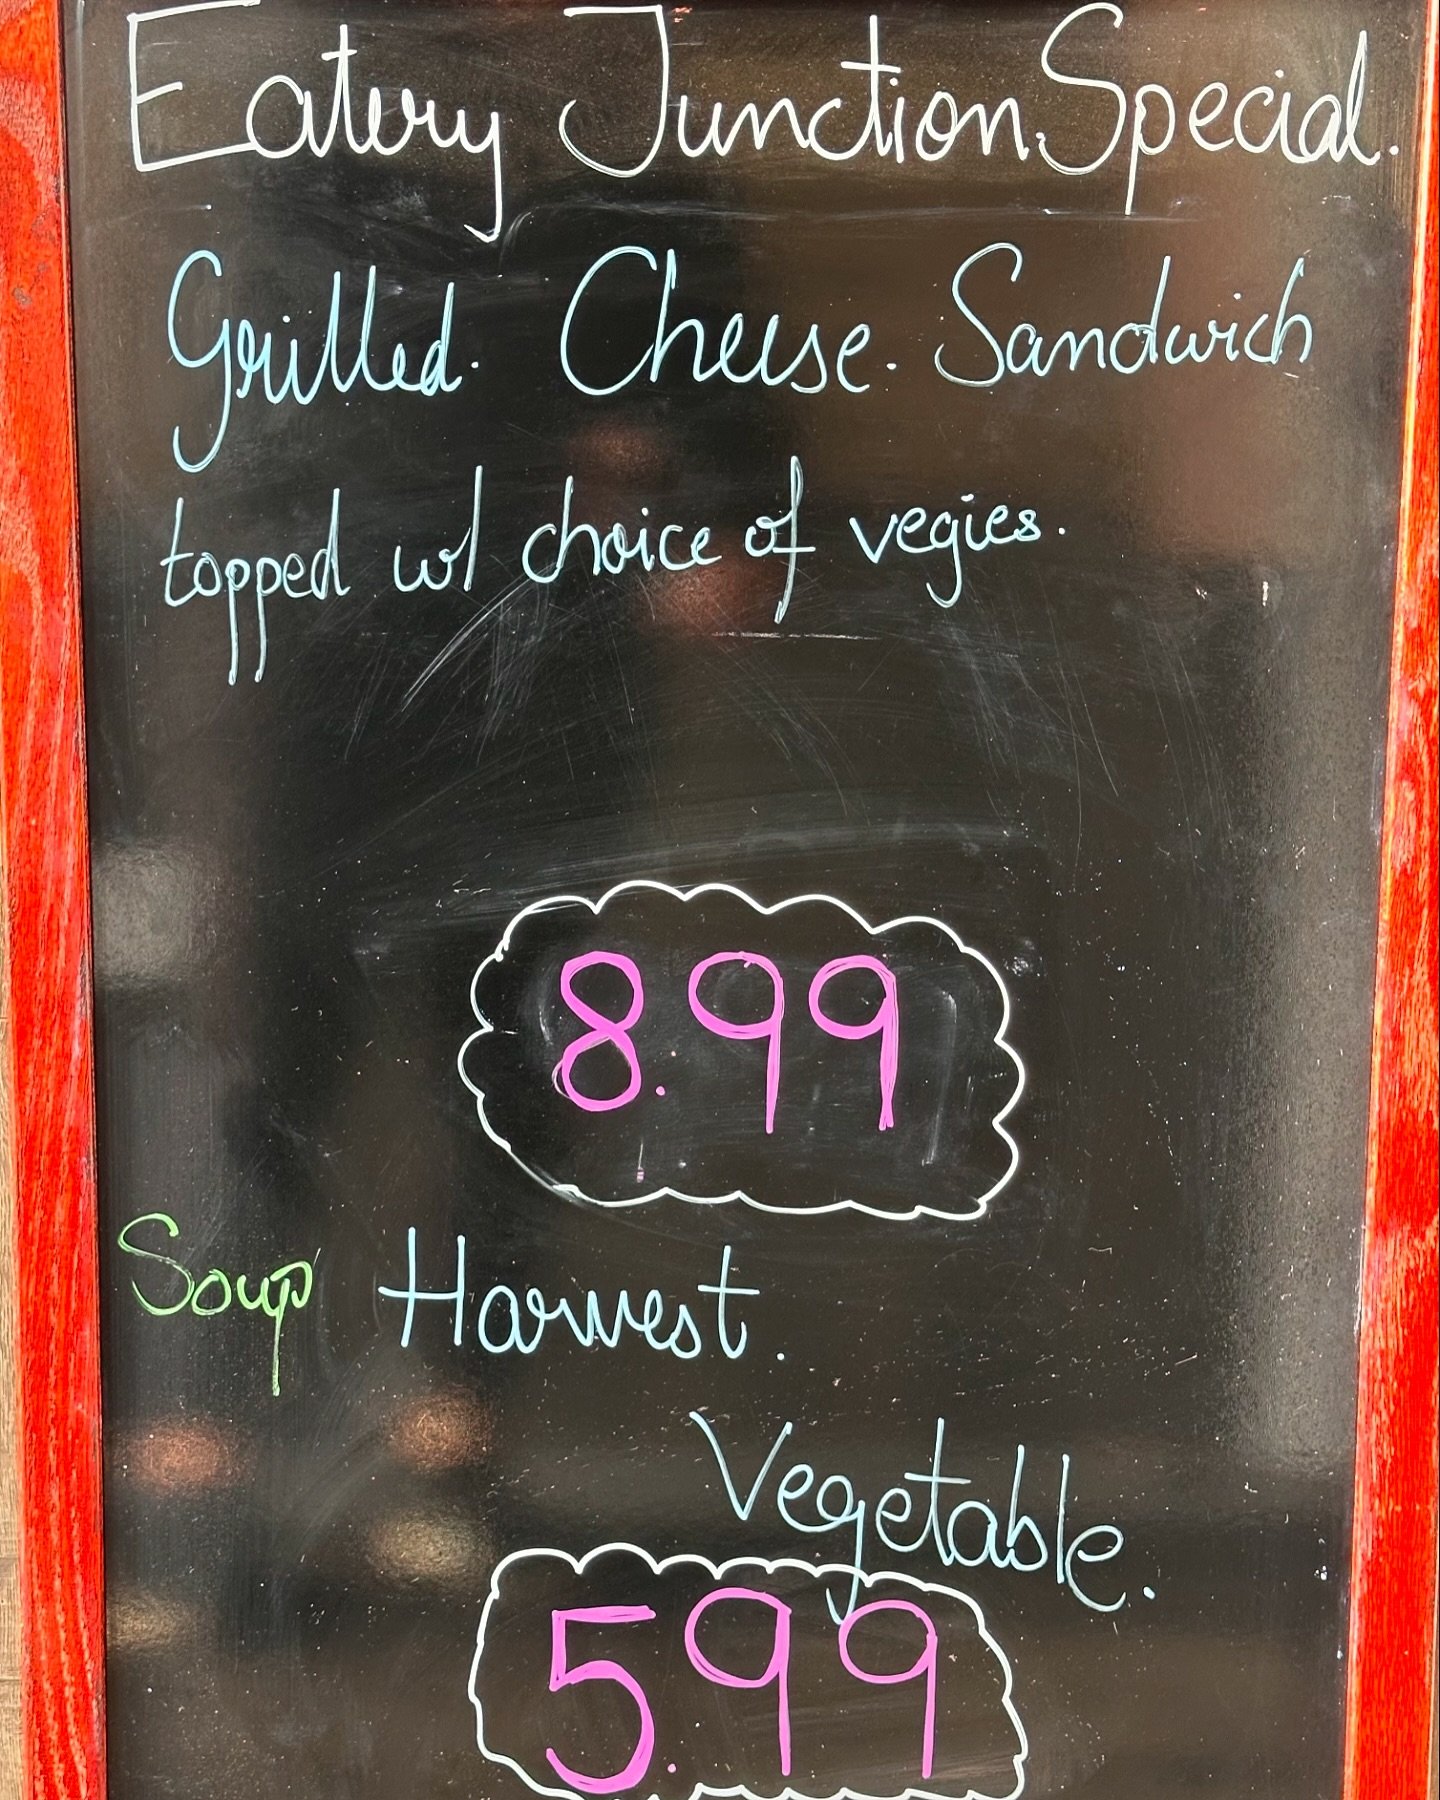 Eatery Junction Special.
Grilled. Cheese. Sandwich
topped w/ choice of vegies.
8.99
Soup Harvest.
Vegetable.
5.99